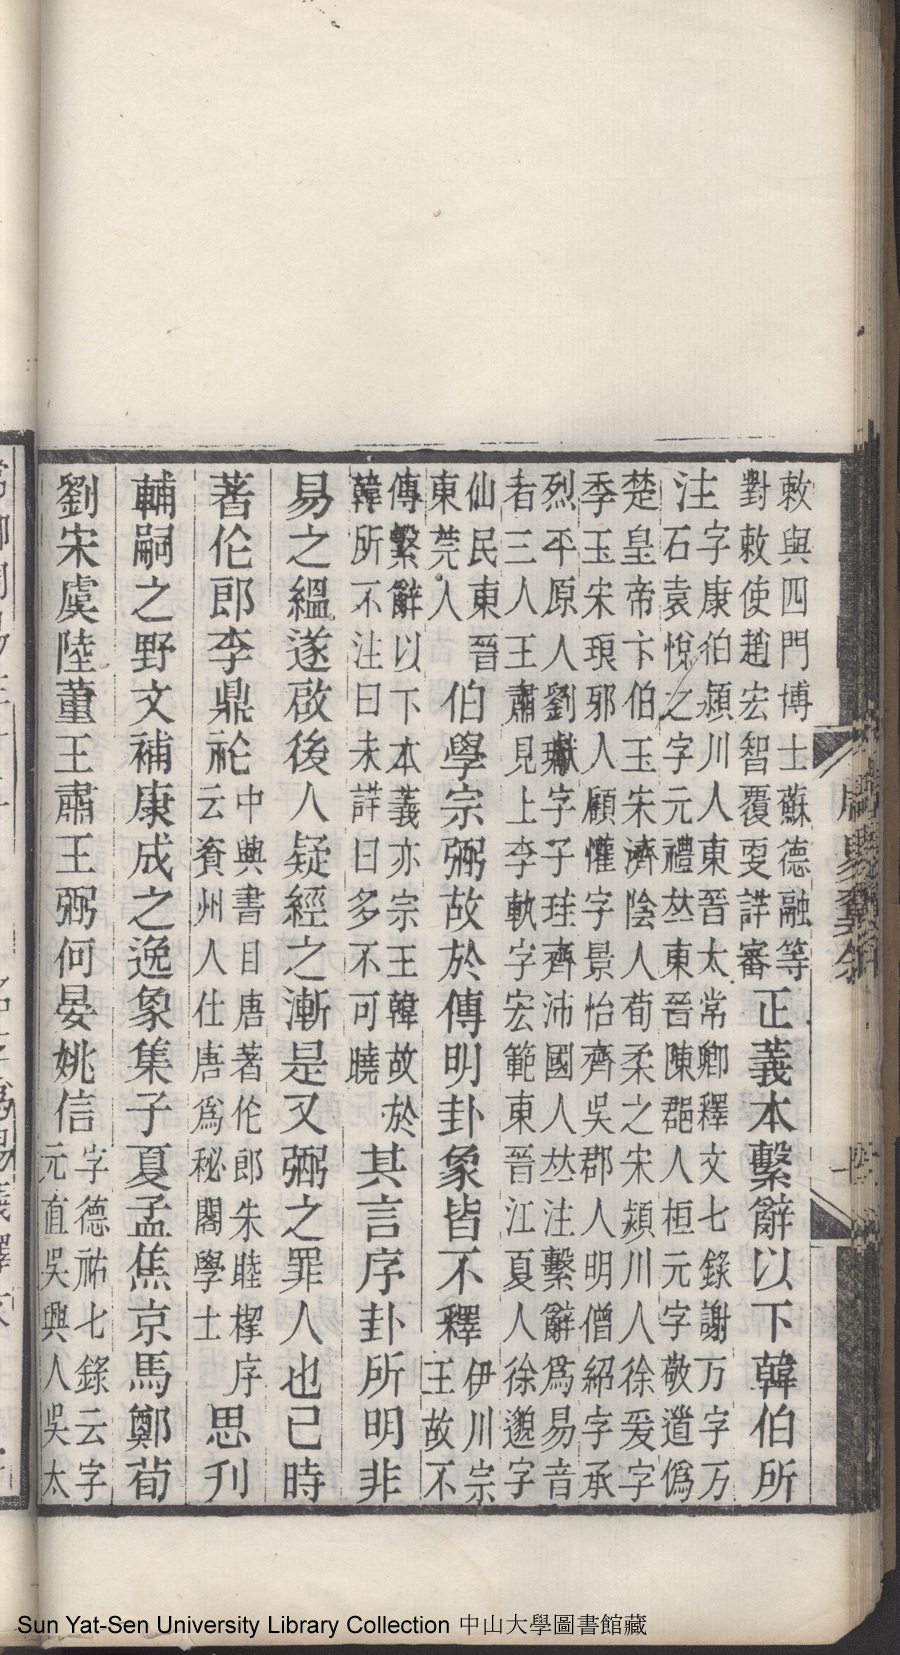 敕與四門博士蘇德融等
對敕使趙宏智覆更詳審
正義本繫辭以下韓伯所
注
字康伯潁川人東晉太常卿釋文七錄謝万字万
石袁悅之字元禮𠀤東晉陳郡人桓元字敬道僞
楚皇帝卞伯玉宋濟陰人荀柔之宋潁川人徐爰字
季玉宋琅邪人顧懽字景怡齊吳郡人明僧紹字承
烈平原人劉瓛字子珪齊沛國人𠀤注繫辭爲易音
者三人王肅見上李軌字宏範東晉江夏人徐邈字
仙民東晉
東莞人
伯學宗弼故於傳明卦象皆不釋
伊川宗
王故不
傳繫辭以下本義亦宗王韓故於
韓所不注曰未詳曰多不可曉
其言序卦所明非
易之縕遂啟後人疑經之漸是又弼之罪人也已時
著作郎李鼎祚
中興書目唐著作郎朱睦㮮序
云資州人仕唐爲秘閣學士
思刋
輔嗣之野文補康成之逸象集子夏孟焦京馬鄭荀
劉宋虞陸董王肅王弼何晏姚信
字德祐七錄云字
元直吳興人吳太
Sun Yat-Sen University Library Collection 中山大學圖書館藏